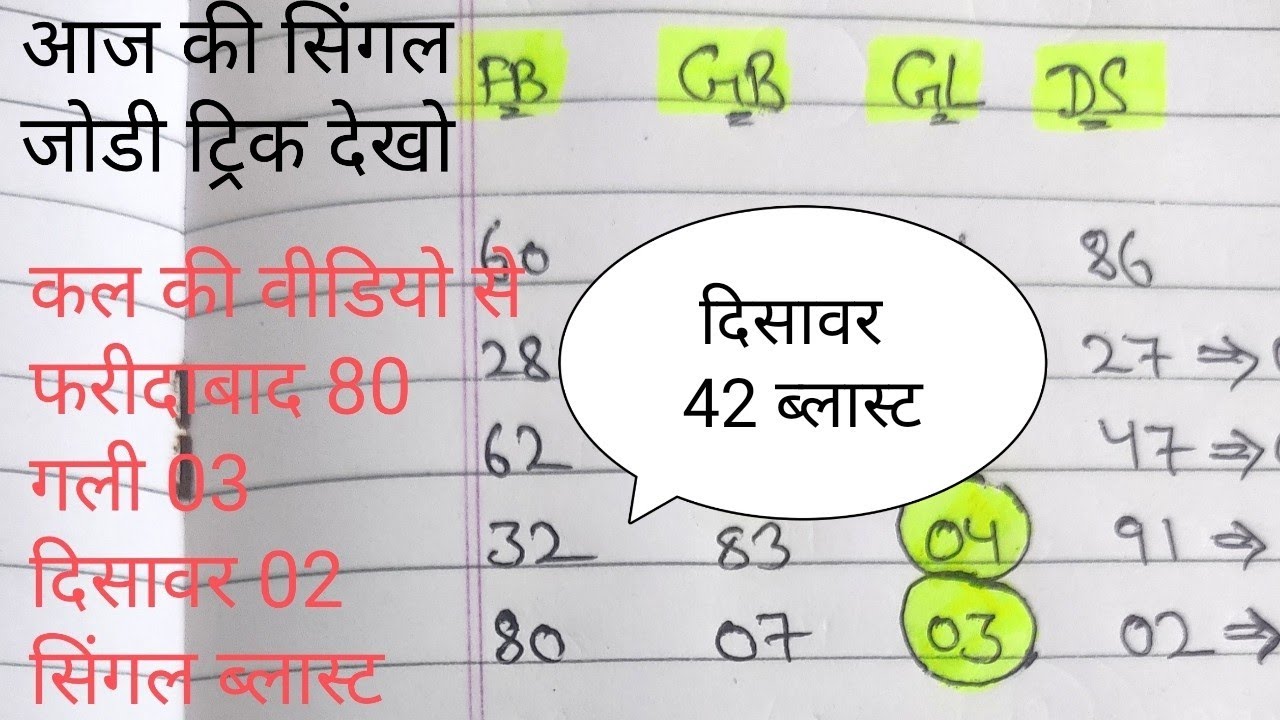 आज की सिंगल
जोडी ट्रिक देखो
FB GB GL DS
कल की वीडियो से
फरीदाबाद 80
गली 03
दिसावर 02
सिंगल ब्लास्ट
दिसावर
42 ब्लास्ट
60 86
28 27 ⇒
62 47 ⇒
32 83 04 91 ⇒
80 07 03 02 ⇒